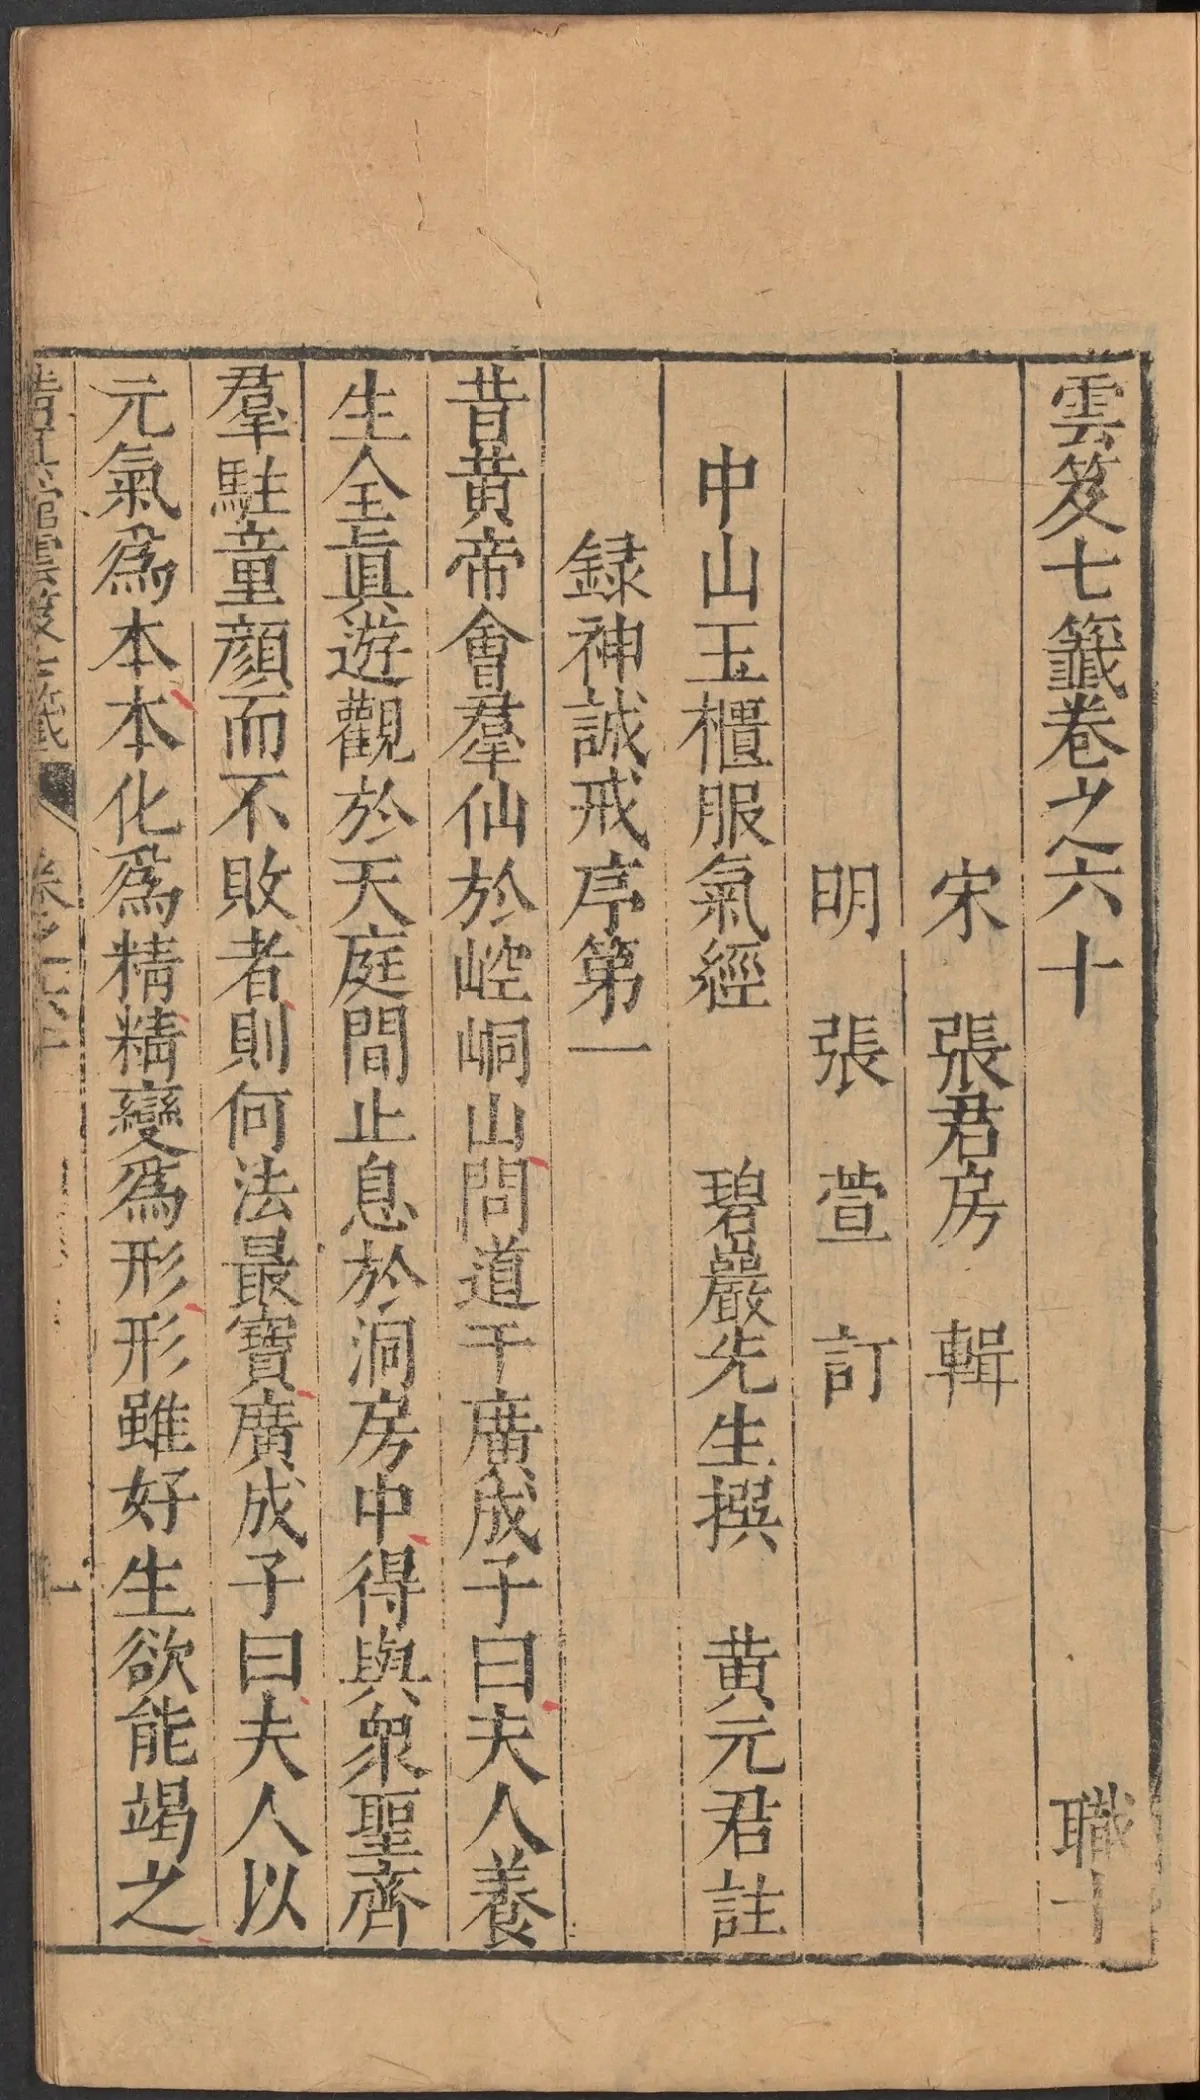 雲笈七籤卷之六十 職十
宋 張君房 輯
明 張萱 訂
中山玉櫃服氣經 碧巖先生撰 黄元君註
録神誠戒序第一
昔黄帝會羣仙於崆峒山問道于廣成子曰夫人養
生全眞遊觀於天庭間止息於洞房中得與衆聖齊
羣駐童顔而不敗者則何法最寶廣成子曰夫人以
元氣爲本本化爲精精變爲形形雖好生欲能竭之
雲笈七籤 卷之六十 一